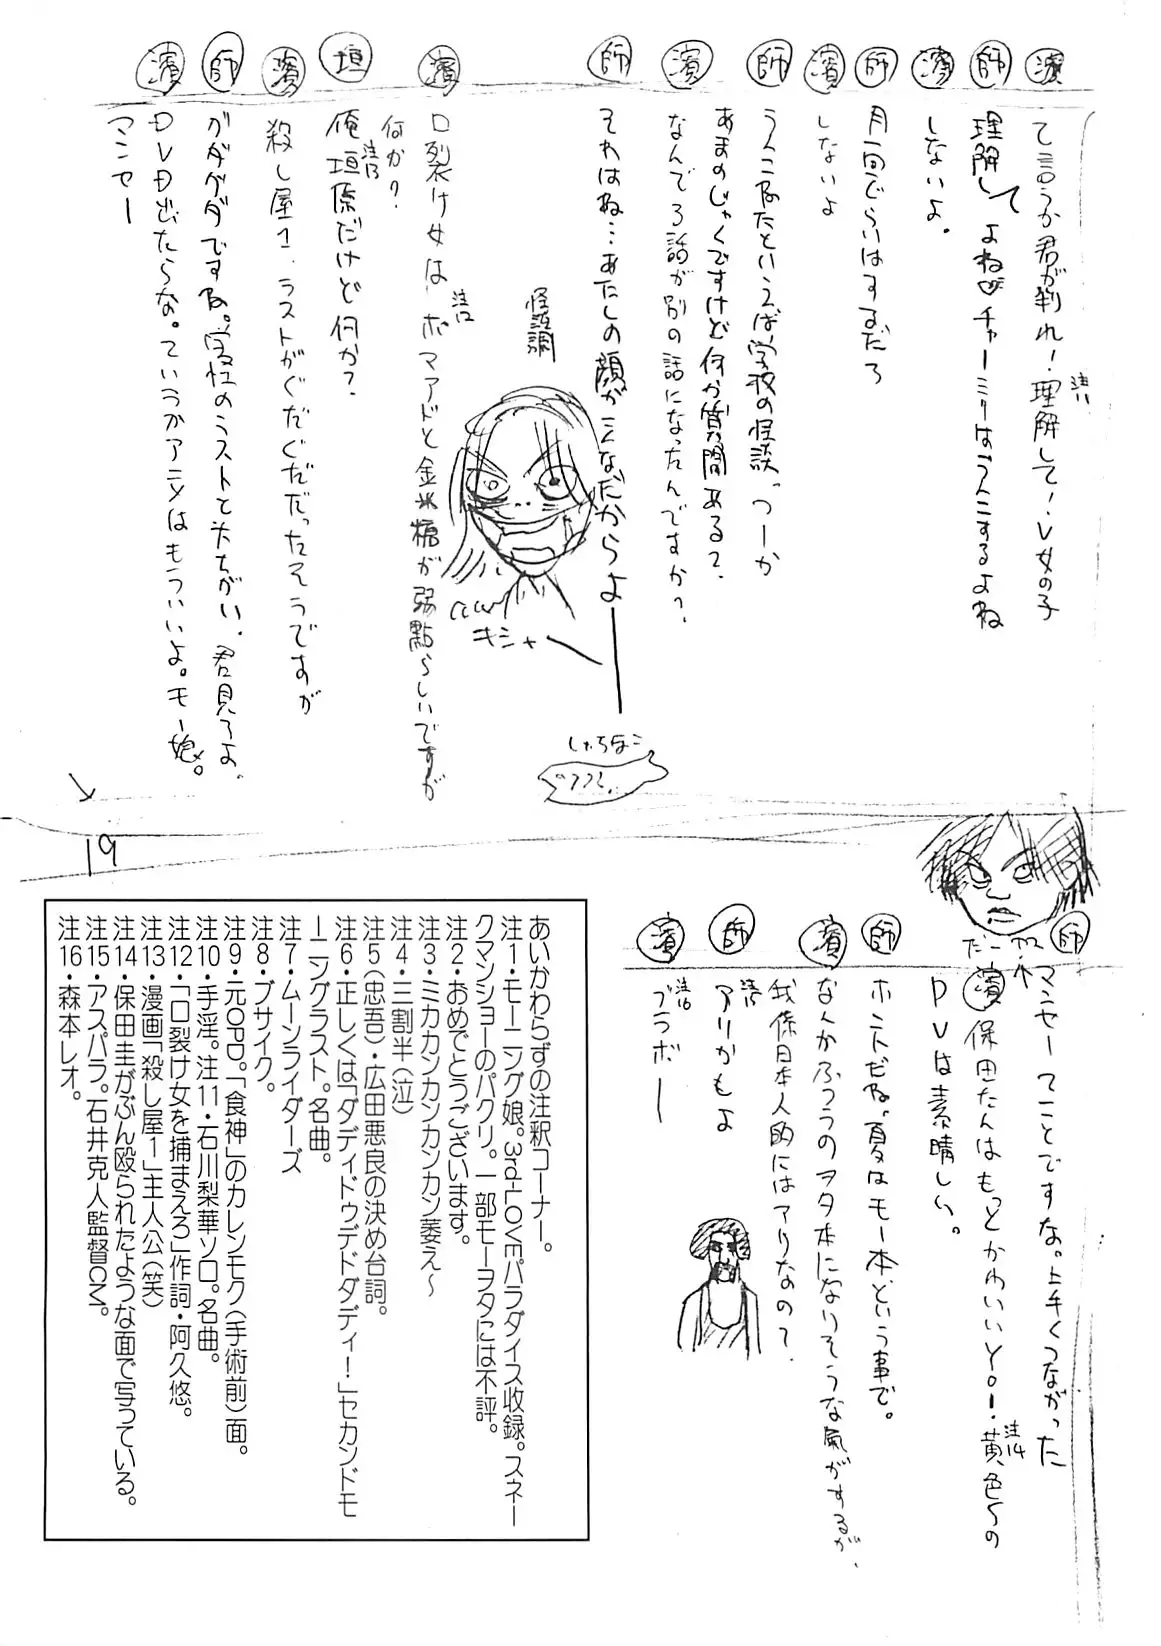 濱 て言うか君が判れ!理解して!V女の子
注11
師 理解してよね チャーミーはうんこするよね
濱 しないよ。
師 月一回ぐらいはするだろ
濱 しないよ
師 うんこねたといえば学校の怪談、つーか
あまのじゃくですけど何か質問ある?
濱 なんで3話が別の話になったんですか?
師 それはね…あたしの顔がこんなだからよ――
怪談調
キシャ
しゃちほこ
濱 口裂け女はポマアドと金米糖が弱點らしいですが
注12
何か?
垣 俺垣原だけど何か?
注13
濱 殺し屋1、ラストがぐだぐだだったそうですが
師 がダグダですね。
君見ろよ。
濱 DVD出たらな。ていうかアニメはもういいよ。モー娘。
マンセー
19
師 マンセーってことですな。上手くつながった
濱 保田たんはもっとかわいいよー・黄色いの
注14
PVは素晴しい。
師 ホントだね。夏はモー本、という事で。
濱 なんかふつうのヲタ本になりそうな氣がするが、
我係日本人的にはアリなの?
師 アリかもよ
注15
濱 ブラボー
注16
あいかわらずの注釈コーナー。
注1・モーニング娘。3rd-LOVEパラダイス収録。スネー
クマンショーのパクリ。一部モーヲタには不評。
注2・おめでとうございます。
注3・ミカカンカンカンカン萎え~
注4・三割半(泣)
注5(忠吾)・広田悪良の決め台詞。
注6・正しくは「ダディドゥデドダディ!」セカンドモ
ーニングラスト。名曲。
注7・ムーンライダーズ
注8・ブサイク。
注9・元OPD。「食神」のカレンモク(手術前)面。
注10・手淫。注11・石川梨華ソロ。名曲。
注12・「口裂け女を捕まえろ」作詞・阿久悠。
注13・漫画「殺し屋1」主人公(笑)
注14・保田圭がぶん殴られたような面で写っている。
注15・アスパラ。石井克人監督CM。
注16・森本レオ。